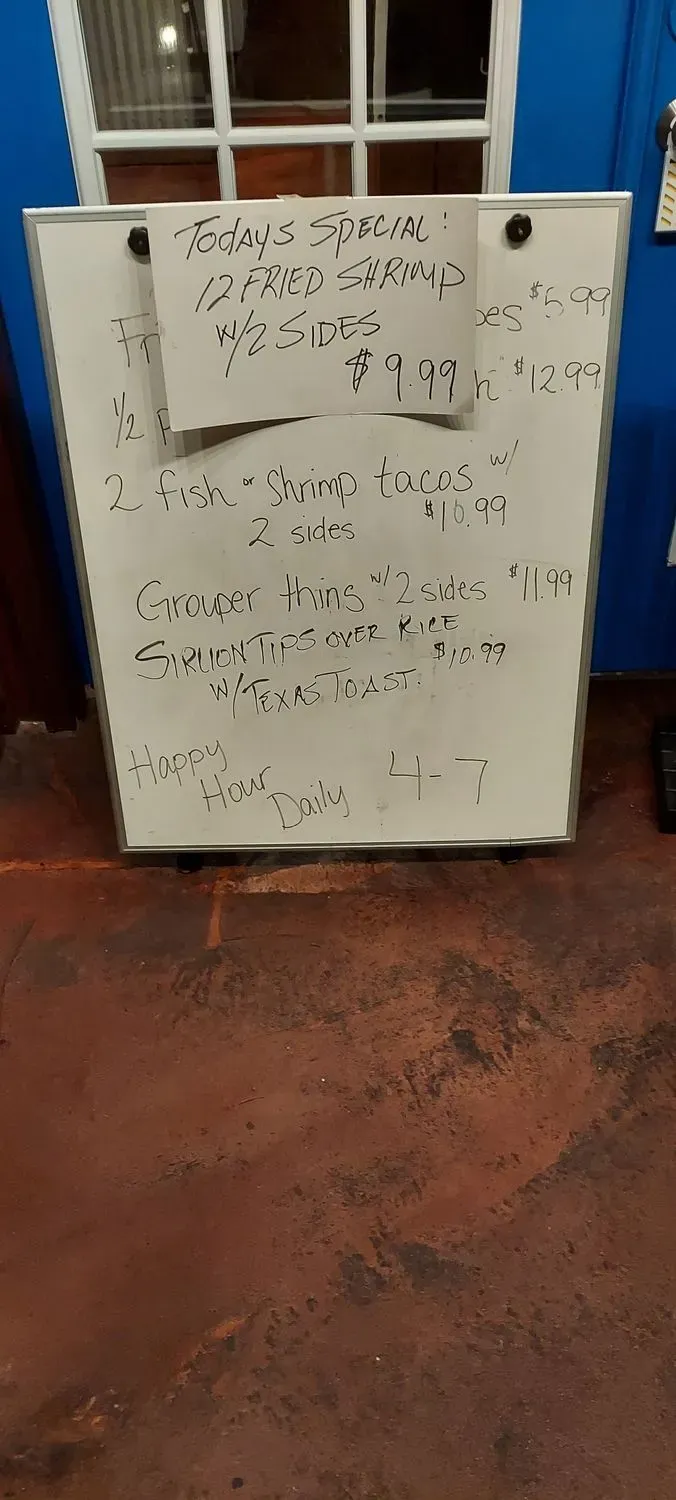 TODAYS SPECIAL:
12 FRIED SHRIMP
W/2 SIDES
$9.99
$5.99
1/2 $12.99
2 fish or Shrimp tacos w/
2 sides $10.99
Grouper thing w/ 2 sides $11.99
SIRLION TIPS OVER RICE
$10.99
W/TEXAS TOAST.
Happy
Hour
Daily 4-7